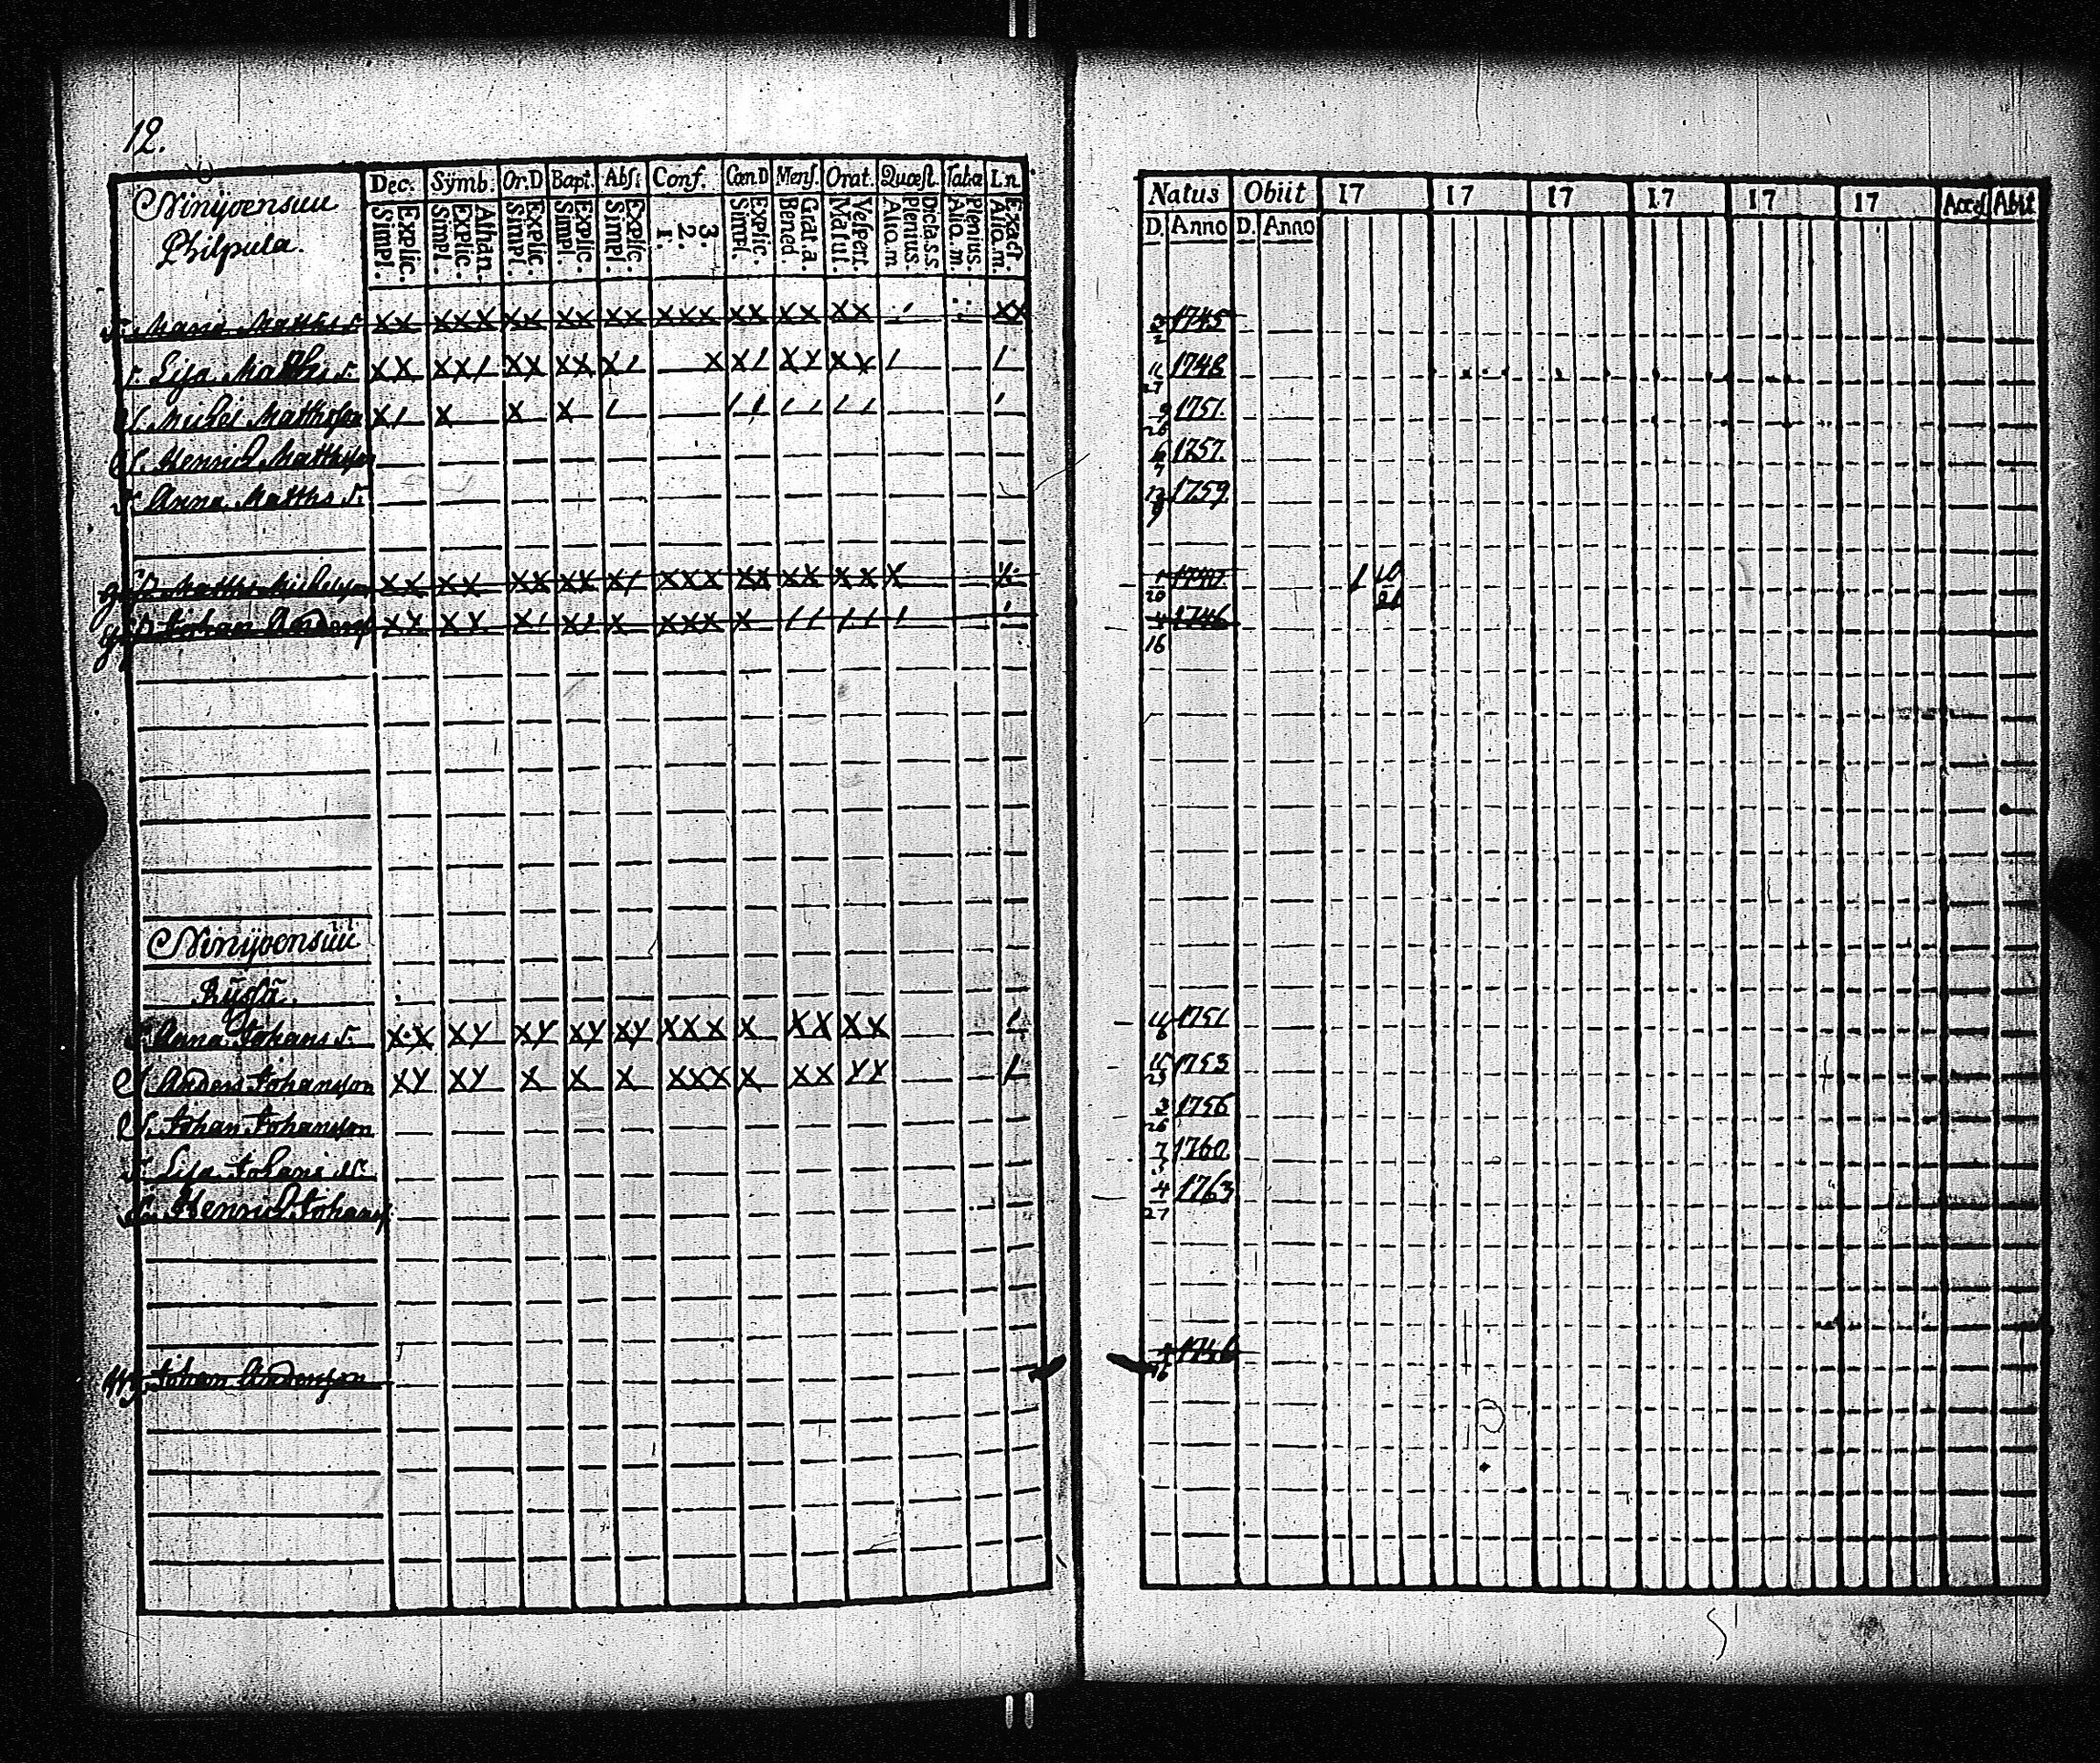 12.
Ninijvensuu
Philpula.
Dec. Symb. Or.D Bapt. Abs: Conf. Cœn D Mens. Orat. Quæst. Tabæ I.n
Explic. Simpl. Athan. Explic. Simpl. Explic. Simpl. Explic. Simpl. Explic. Simpl. 3. 2. 1. Explic. Simpl. Grat.a. Bened. Vespert. Matut. Dicta.s.s. Plenius. Aliq.m. Plenius. Aliq.m. Exact. Aliq.m.
Natus Obiit 17 17 17 17 17 17 Acces Abiit
D. Anno D. Anno
Maria Matths d. XX XXX XX XX XX XXX XX XX XX / XX 2 1745
d. Lisa Matths d. XX XX/ XX XX X/ X X/ XX XX / / 11 27 1748
S. Michel Matthsson X/ X X X / // // // / 9 26 1751.
S. Henrich Matthsson 6 7 1757.
d. Anna Matths d. 12 9 1759
Matths Michelsson XX XX XX XX X/ XXX XX XX XX X X 1 20 1 10 21
Johan Anderss XX XX X/ X/ X XXX X // // / / 4 16 1746
Ninijvensuu
Rysså.
Anna Johans d. XX XY XY XY XY XXX X XX XX / 11 6 1751
S. Anders Johansson XY XY X X X XXX X XX YY / 11 25 1753
S. Johan Johansson 3 26 1756
d. Lisa Johans d. 7 1760
S. Henrich Johanss 4 27 1763
Mg Johan Andersson 4 16 1746